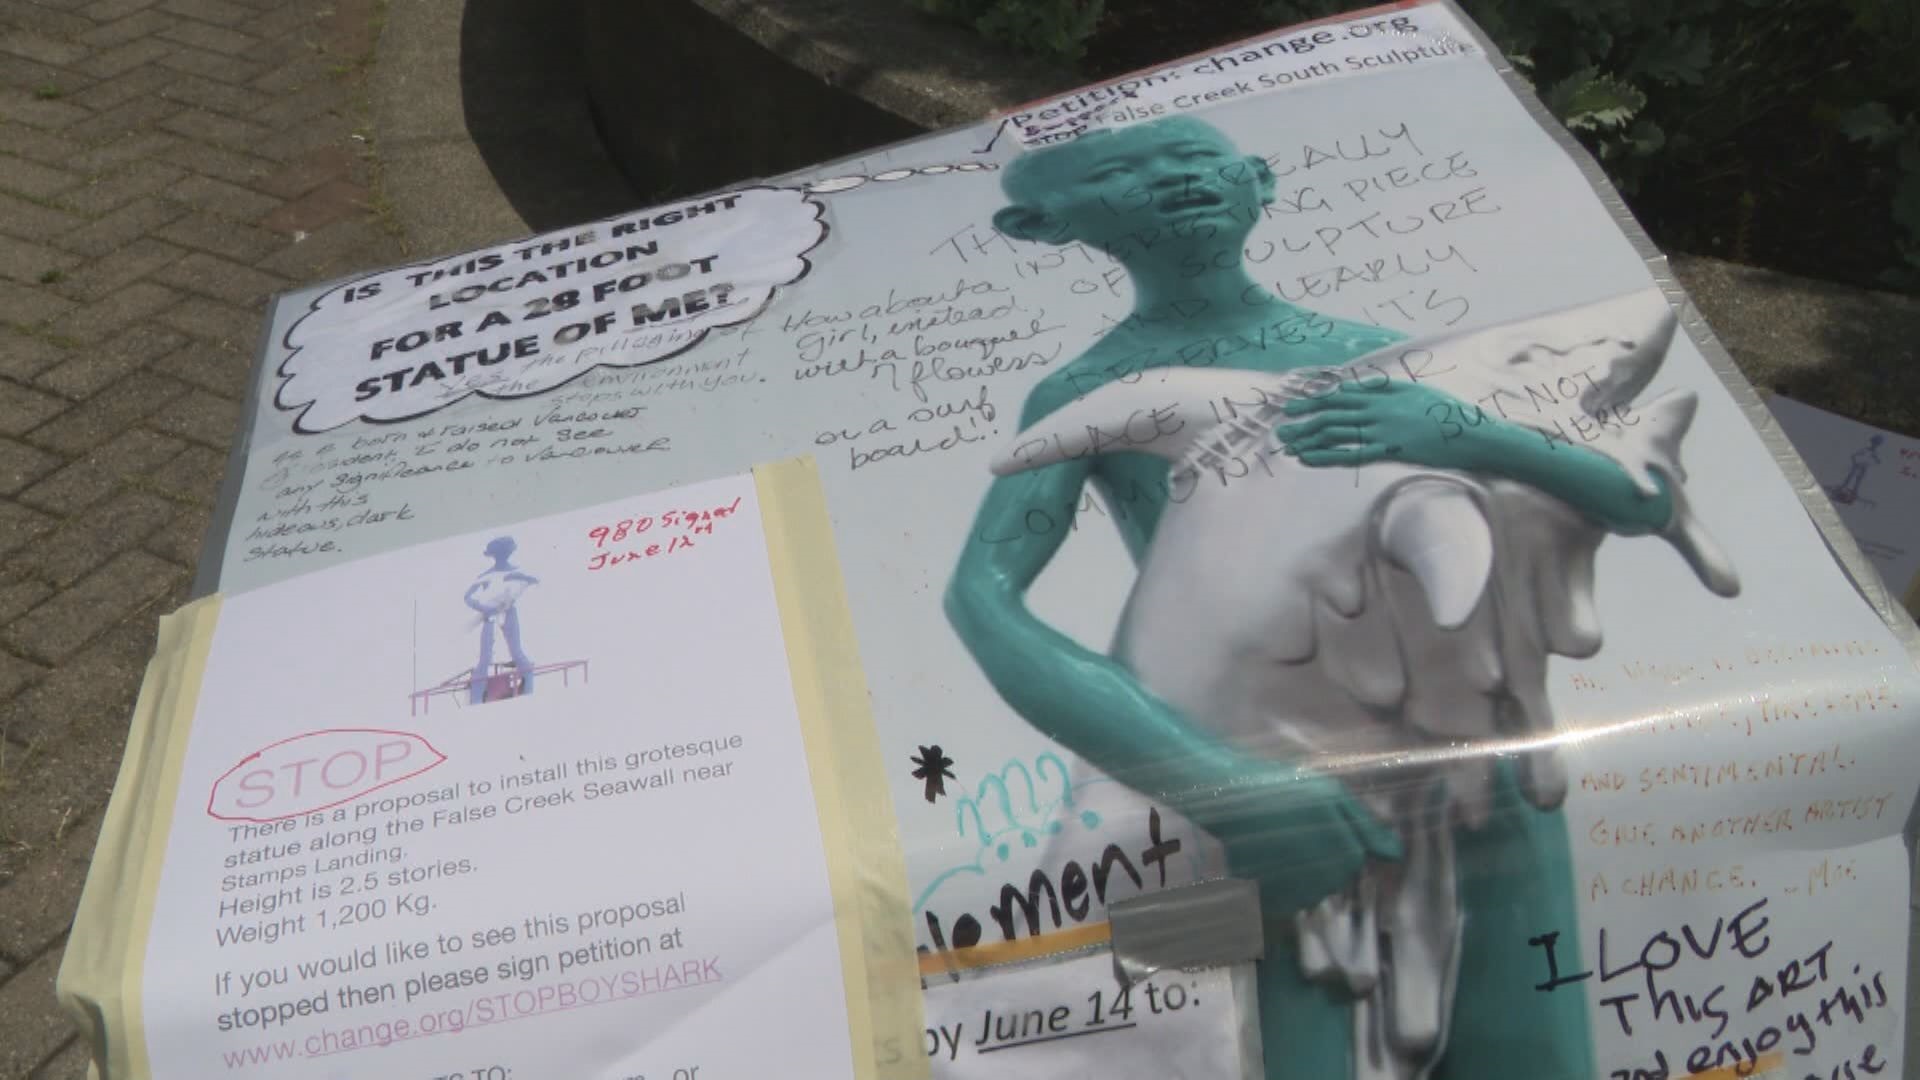 Petition: change.org
STOP False Creek South Sculpture
IS THIS THE RIGHT
LOCATION
FOR A 28 FOOT
STATUE OF ME?
Yes the pillaging of
the environment
stops with you.
As a born & raised Vancouver
resident, I do not see
any significance to Vancouver
with this
hideous, dark
statue.
How about a
girl, instead,
with a bouquet
of flowers
or a surf
board!!
THIS IS A REALLY
INTERESTING PIECE
OF SCULPTURE
AND CLEARLY
DESERVES ITS
PLACE IN OUR
COMMUNITY.
BUT NOT
HERE.
980 signed
June 12th
STOP
There is a proposal to install this grotesque
statue along the False Creek Seawall near
Stamps Landing.
Height is 2.5 stories.
Weight 1,200 Kg.
If you would like to see this proposal
stopped then please sign petition at
www.change.org/STOPBOYSHARK
TO:
or
*
????
by June 14 to:
AND SENTIMENTAL.
GIVE ANOTHER ARTIST
A CHANCE. _MOE
I LOVE
THIS ART
and enjoy this